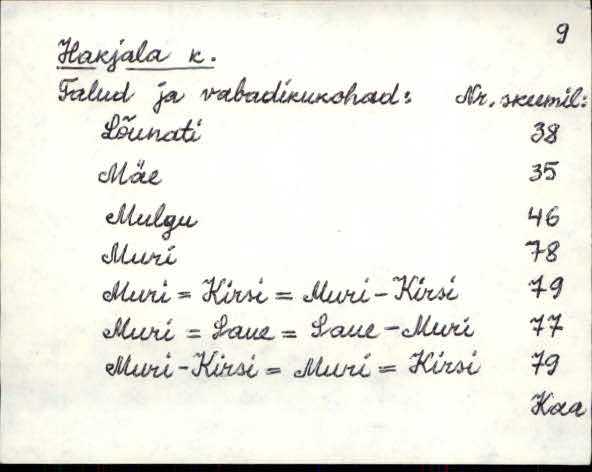 9
Hakjala k.
Talud ja vabadikukohad: Nr. skeemil:
Lõunati 38
Mäe 35
Mulgu 46
Muri 78
Muri = Kirsi = Muri-Kirsi 79
Muri = Laue = Laue-Muri 77
Muri-Kirsi = Muri = Kirsi 79
Kaa